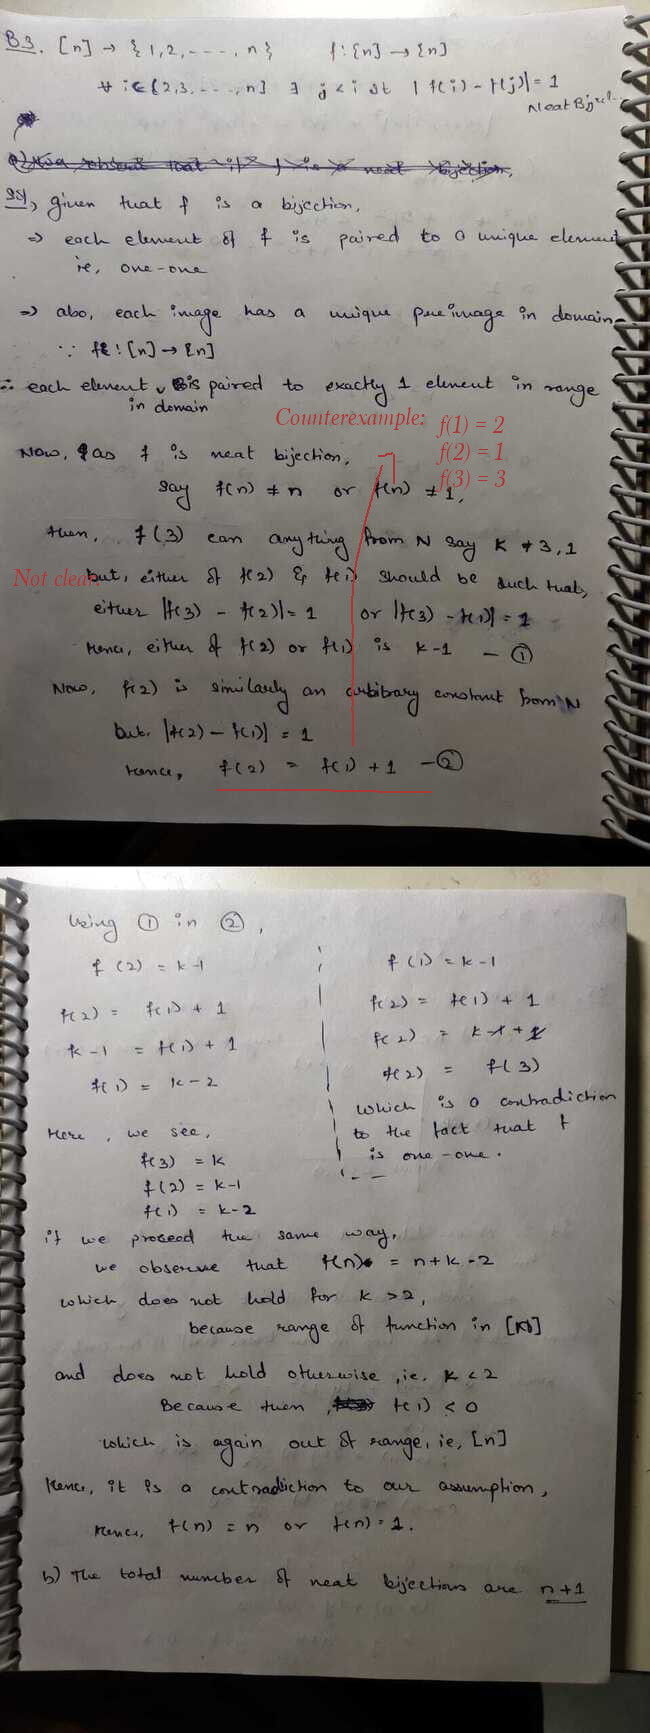 B3. [n] → {1,2,----,n} f:[n] → [n]
∀ i∈{2,3,----,n] ∃ j < i st | f(i) - f(j)| = 1
Neat Bijecti.
is a neat bijection,
a), given that f is a bijection,
⇒ each element of f is paired to a unique element
ie, one-one
⇒ also, each image has a unique preimage in domain
∵ f: [n] → [n]
∴ each element in domain is paired to exactly 1 element in range
Counterexample: f(1) = 2
f(2) = 1
f(3) = 3
Now, as f is neat bijection,
say f(n) ≠ n or f(n) ≠ 1,
then, f(3) can anything from N say K ≠ 3,1
Not clear
but, either of f(2) & f(1) should be such that,
either |f(3) - f(2)| = 1 or |f(3) - f(1)| = 1
Hence, either of f(2) or f(1) is k-1 - ①
Now, f(2) is similarly an arbitrary constant from N
but, |f(2) - f(1)| = 1
Hence, f(2) = f(1) + 1 - ②
Using ① in ②,
f(2) = k-1
f(2) = f(1) + 1
k-1 = f(1) + 1
f(1) = k-2
Here, we see,
f(3) = k
f(2) = k-1
f(1) = k-2
f(1) = k-1
f(2) = f(1) + 1
f(2) = k-1+1
f(2) = f(3)
which is a contradiction
to the fact that f
is one-one.
if we proceed the same way,
we observe that f(n) = n+k-2
which does not hold for k >2,
because range of function in [n]
and does not hold otherwise, ie. k < 2
Because then, f(1) < 0
which is again out of range, ie, [n]
Hence, it is a contradiction to our assumption,
Hence, f(n) = n or f(n) = 1.
b) The total number of neat bijections are n+1